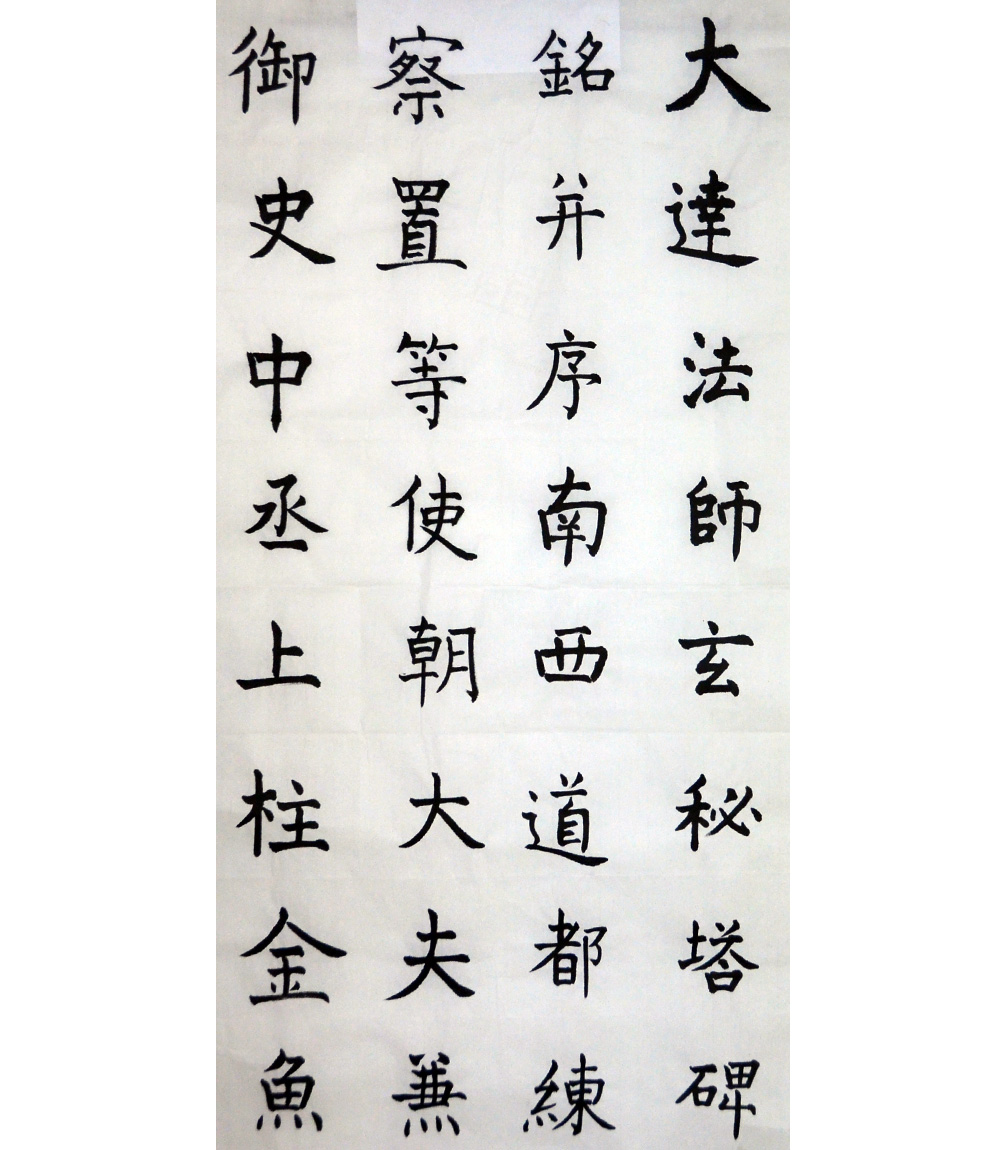 大達法師玄秘塔碑
銘并序南西道都練
察置等使朝大夫兼
御史中丞上柱金魚